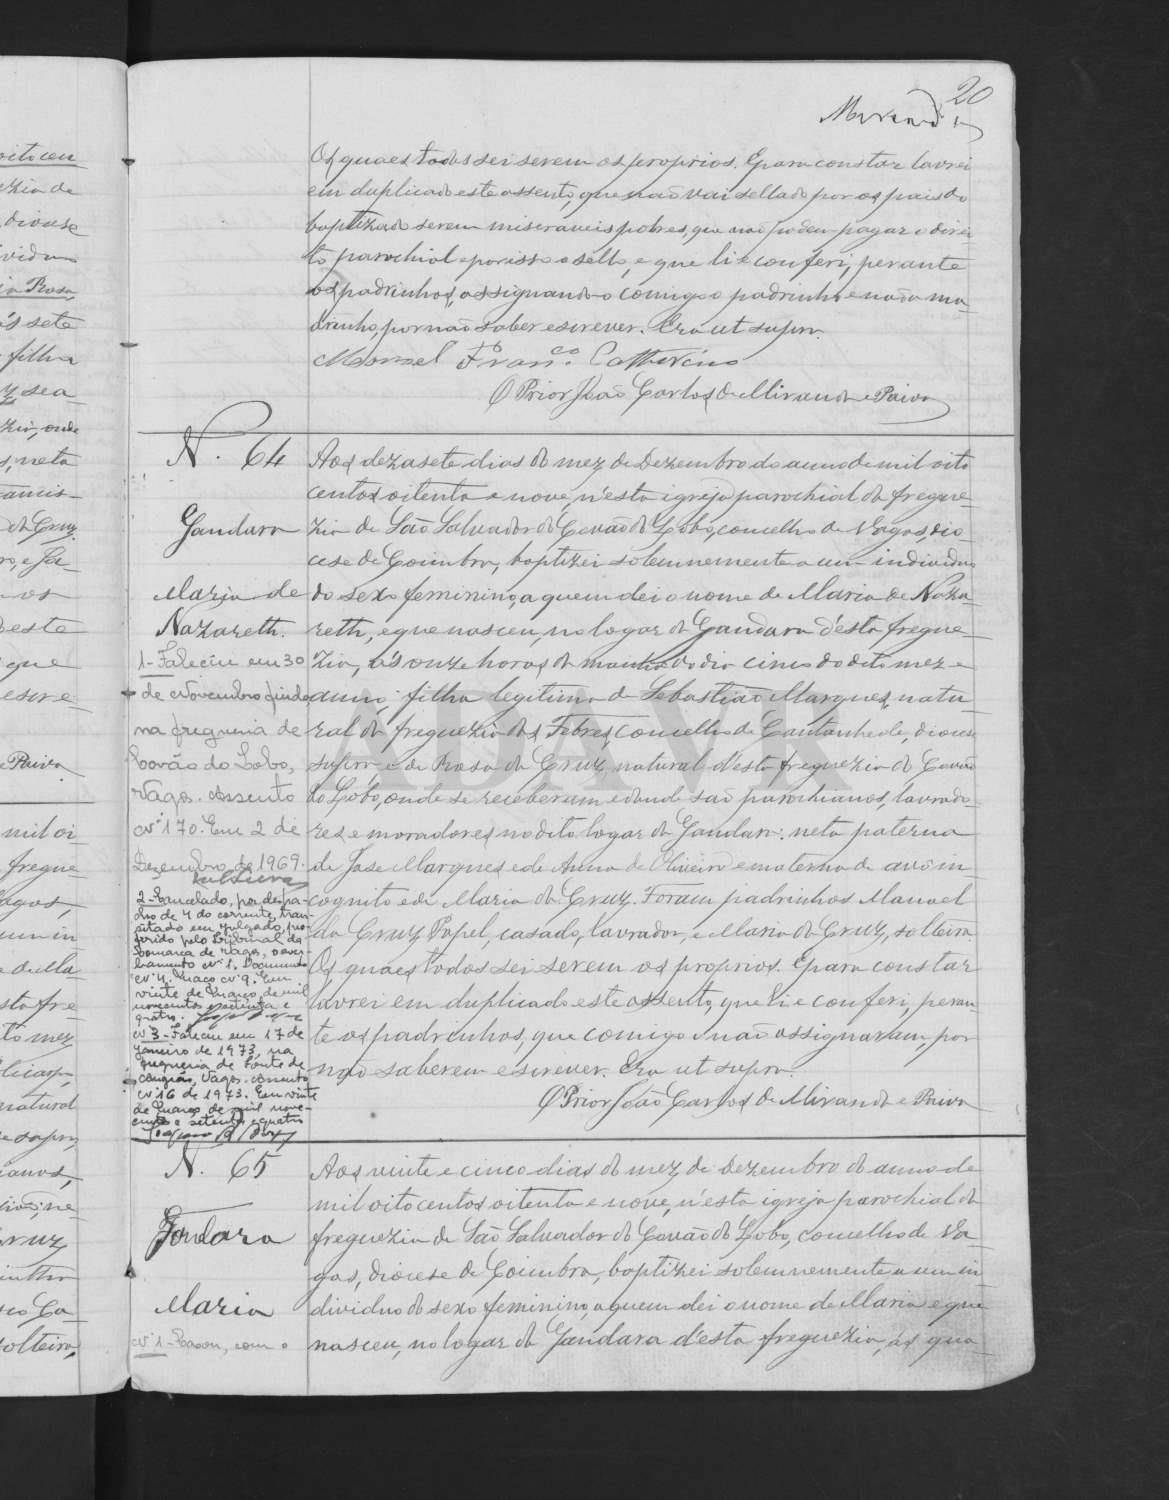 20
Miranda
Os quaes todos sei serem os proprios. E para constar lavrei
em duplicado este assento, que não vai sellado por os pais do
baptizado serem miseraveis pobres, que não podem pagar o direi-
to parochial e por isso o sello, e que li e conferi, perante
os padrinhos, assignando-o comigo o padrinho e não a ma-
drinha, por não saber escrever. Era ut supra.
Manoel Franco. Catherino
O Prior João Carlos de Miranda e Paiva
N. 64
Gandara
Maria de
Nazareth.
1-Faleceu em 30
de Novembro findo
na freguesia de
Covão do Lobo,
Vagos. Assento
nº 170. Em 2 de
Dezembro de 1969.
2-Cancelado, por despa-
cho de 4 do corrente, tran-
sitado em julgado, pro-
ferido pelo Tribunal da
Comarca de Vagos, o aver-
bamento nº 1. Documento
nº 4. Maço nº 9. Em
vinte de Março de mil
novecentos e setenta e
quatro.
nº 3-Faleceu em 17 de
Janeiro de 1973, na
freguesia de Ponte de
Vagos. Assento
nº 16 de 1973. Em vinte
de Março de mil nove-
centos e setenta e quatro
Aos dezasete dias do mez de Dezembro do anno de mil oito
centos oitenta e nove, n'esta igreja parochial da fregue-
zia de São Salvador do Covão do Lobo, concelho de Vagos, dio-
cese de Coimbra, baptizei solemnemente a um individuo
do sexo feminino, a quem dei o nome de Maria de Naza-
reth, e que nasceu, no logar da Gandara d'esta fregue-
zia, ás onze horas da manhã do dia cinco do dito mez e
anno, filha legitima de Sebastião Marques, natu-
ral da freguezia das Febres, concelho de Cantanhede, diocese
supra, e de Rosa da Cruz, natural d'esta freguezia do Covão
do Lobo, onde se receberam e donde são parochianos, lavrado-
res e moradores no dito logar da Gandara: neta paterna
de José Marques e de Anna de Oliveira e materna de avô in-
cognito e de Maria da Cruz. Foram padrinhos Manoel
da Cruz Papel, casado, lavrador, e Maria da Cruz, solteira.
Os quaes todos sei serem os proprios. E para constar
lavrei em duplicado este assento, que li e conferi, peran-
te os padrinhos, que comigo não assignaram, por
não saberem escrever. Era ut supra.
O Prior João Carlos de Miranda e Paiva
N. 65
Gandara
Maria
nº 1-Casou, com o
Aos vinte e cinco dias do mez de Dezembro do anno de
mil oitocentos oitenta e nove, n'esta igreja parochial da
freguezia de São Salvador do Covão do Lobo, concelho de Va-
gos, diocese de Coimbra, baptizei solemnemente a um in-
dividuo do sexo feminino, a quem dei o nome de Maria e que
nasceu, no logar da Gandara d'esta freguezia, ás qua-